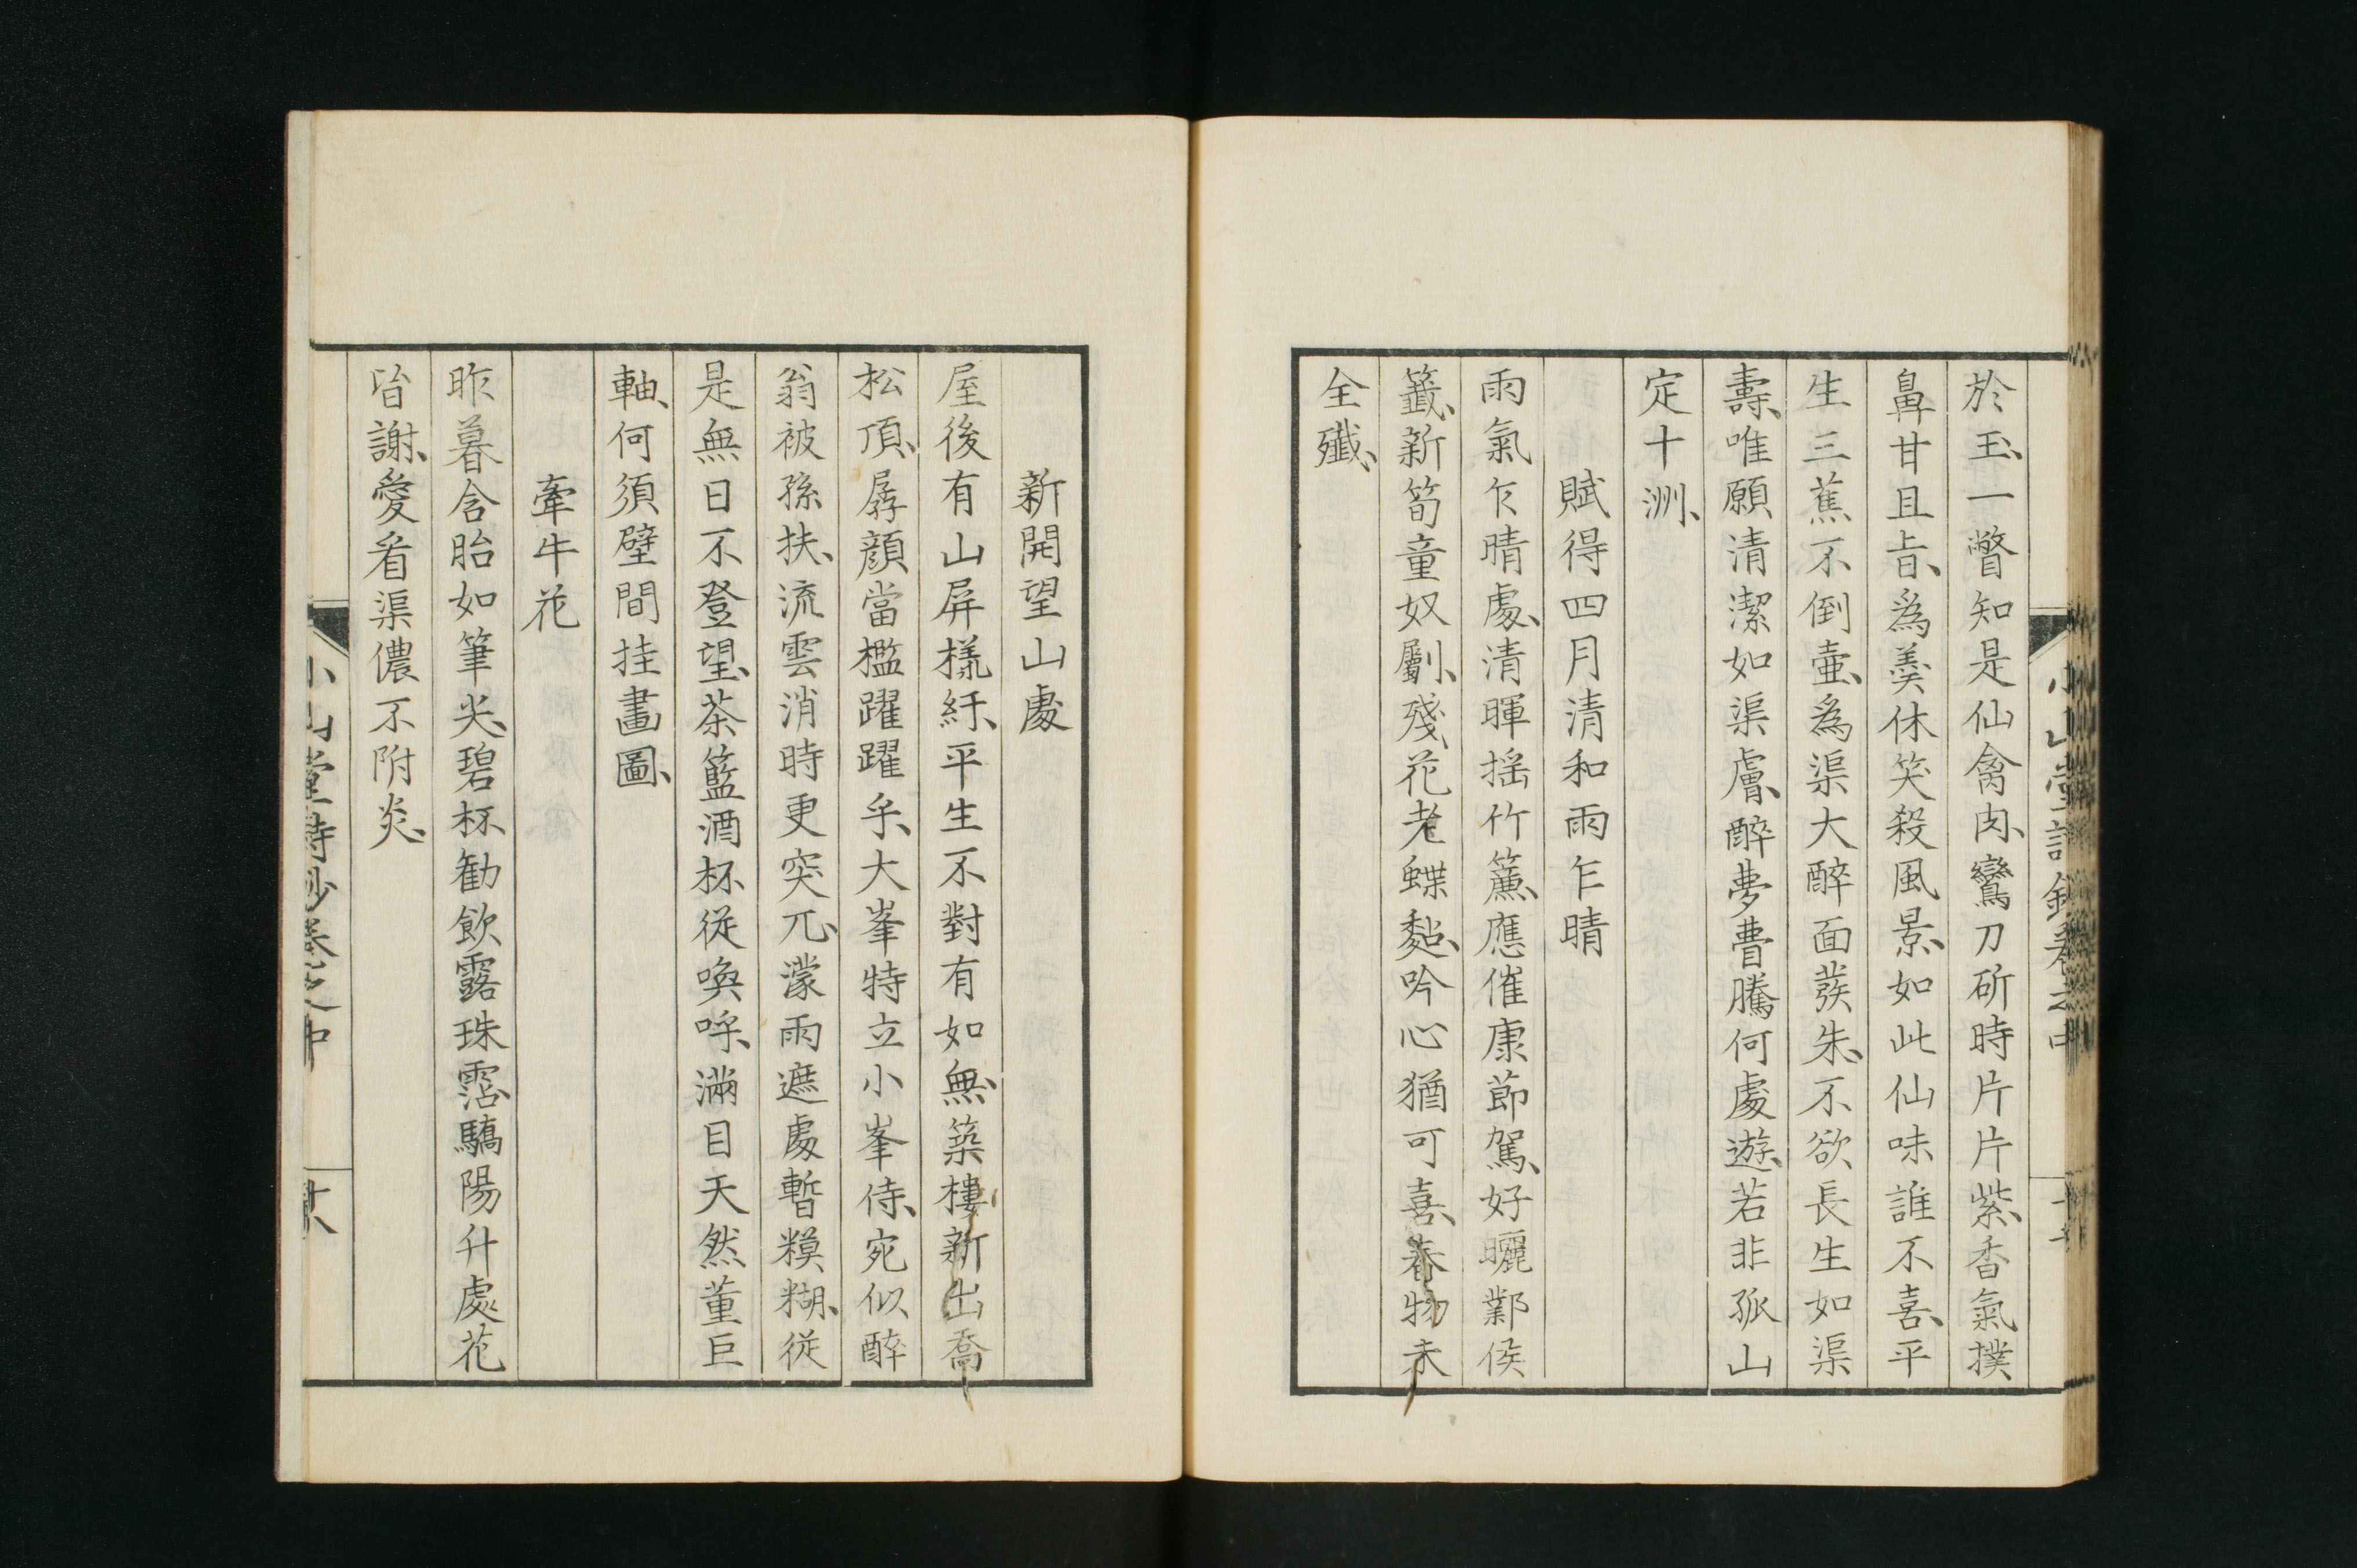 於玉、一瞥知是仙禽肉、鸞刀斫時片片紫、香氣撲
鼻甘且旨、爲羹休笑殺風景、如此仙味誰不喜、平
生三蕉不倒壷、爲渠大醉面蕟朱、不欲長生如渠
壽、唯願清潔如渠膚、醉夢瞢騰何處遊、若非孤山
定十洲、
賦得四月清和雨乍晴
雨氣乍晴處、清暉揺竹簾、應催康莭駕、好曬鄴侯
籤、新筍童奴劚、殘花老蝶黏、吟心猶可喜、春物未
全殱、
新開望山處
屋後有山屏樣紆、平生不對有如無、築樓新出喬
松頂、孱顔當檻躍躍乎、大峯特立小峯侍、宛似醉
翁被孫扶、流雲消時更突兀、濛雨遮處暫糢糊、従
是無日不登望、茶籃酒杯従喚呼、滿目天然董巨
軸、何須壁間挂畫圖、
牽牛花
昨暮含胎如筆尖、碧杯勧飲露珠霑、驕陽升處花
皆謝、愛看渠儂不附炎、
小山堂詩鈔卷之中